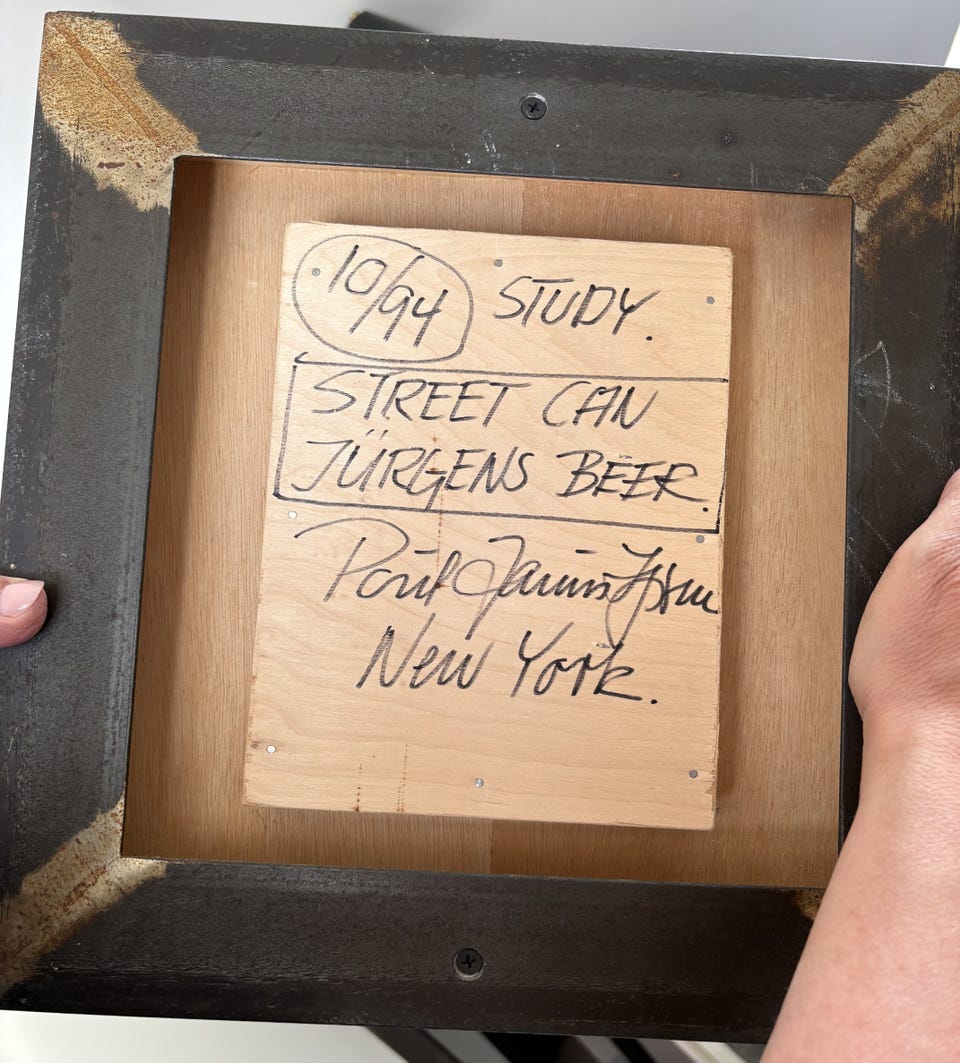 10/94 STUDY.
STREET CAN
JÜRGENS BEER.
Paul
New York.